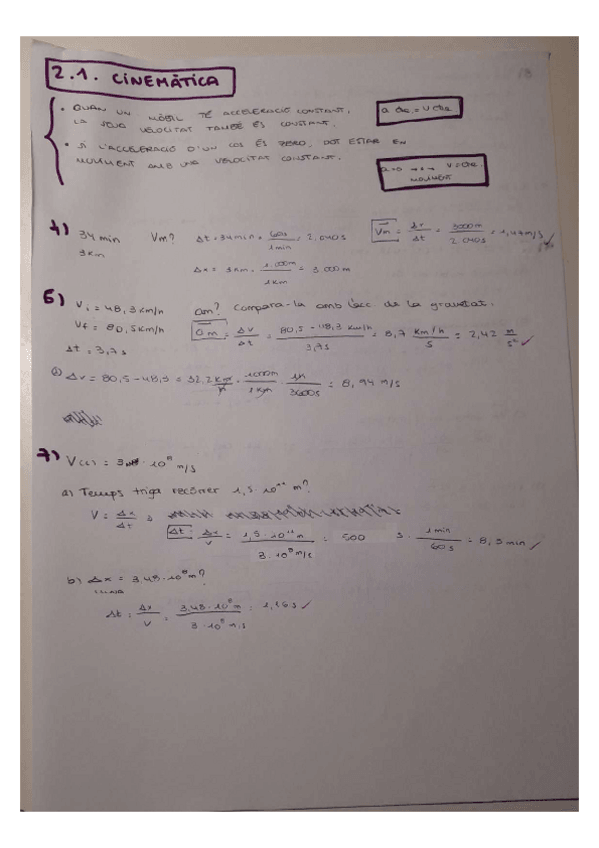 2.1. CINEMÀTICA
• QUAN UN MÒBIL TÉ ACCELERACIÓ CONSTANT,
LA SEVA VELOCITAT TAMBÉ ÉS CONSTANT.
a cte = v cte
• SI L'ACCELERACIÓ D'UN COS ÉS ZERO, POT ESTAR EN
MOVIMENT AMB UNA VELOCITAT CONSTANT.
a=0 → v=cte.
34 min Vm? Δt = 34min · 60s/1min = 2.040s Vm = Δx/Δt = 3000m/2.040s = 1,47m/s
3km Δx = 3km · 1.000m/1km = 3.000m
6) Vi = 48,3 km/h am? Compara-la amb l'acc. de la gravetat.
Vf = 80,5 km/h am = Δv/Δt = 80,5-48,3 km/h / 3,7s = 8,7 km/h / s = 2,42 m/s² ✓
Δt = 3,7s
Δv = 80,5 - 48,3 = 32,2 km/h · 1000m/1km · 1h/3600s = 8,94 m/s
7) V(c) = 3 · 10⁸ m/s
a) Temps triga recórrer 1,5 · 10¹¹ m?
V = Δx/Δt
Δt = Δx/v = 1,5 · 10¹¹ m / 3 · 10⁸ m/s = 500 s · 1min/60s = 8,3 min ✓
b) Δx = 3,48 · 10⁸ m?
LLUNA
Δt = Δx/v = 3,48 · 10⁸ m / 3 · 10⁸ m/s = 1,16s ✓